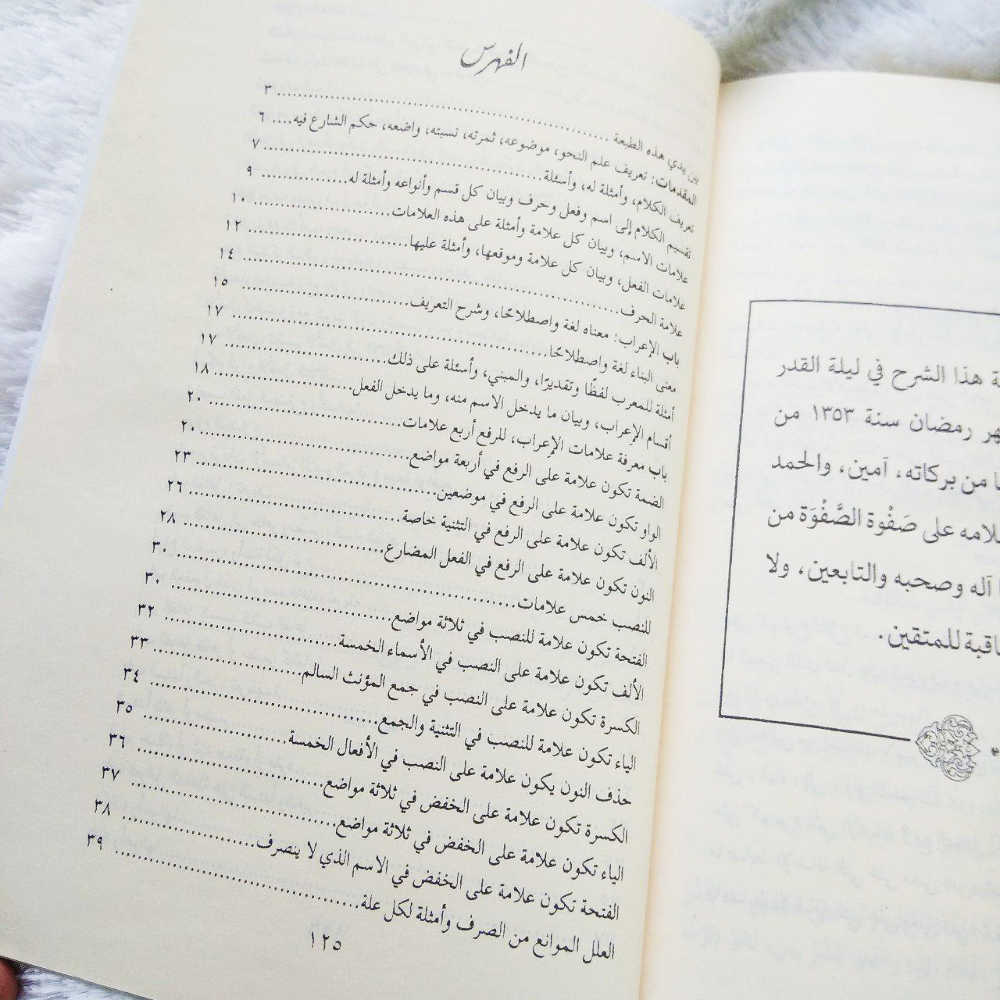 هذا الشرح في ليلة القدر
رمضان سنة ١٣٥٣ من
من بركاته، آمين، والحمد
على صَفْوة الصَّفْوَة من
آله وصحبه والتابعين، ولا
للمتقين.
الفهرس
بين يدي هذه الطبعة ........ ٣
المقدمات: تعريف علم النحو، موضوعه، ثمرته، نسبته، واضعه، حكم الشارع فيه.... ٦
تعريف الكلام، وأمثلة له، وأسئلة ........ ٧
تقسيم الكلام إلى اسم وفعل وحرف وبيان كل قسم وأنواعه وأمثلة له ........ ٩
علامات الاسم، وبيان كل علامة وأمثلة على هذه العلامات ........ ١٠
علامات الفعل، وبيان كل علامة وموقعها، وأمثلة عليها ........ ١٢
علامة الحرف ........ ١٤
باب الإعراب: معناه لغة واصطلاحًا، وشرح التعريف ........ ١٥
معنى البناء لغة واصطلاحًا ........ ١٧
أمثلة للمعرب لفظًا وتقديرًا، والمبني، وأسئلة على ذلك ........ ١٧
أقسام الإعراب، وبيان ما يدخل الاسم منه، وما يدخل الفعل ........ ١٨
باب معرفة علامات الإعراب، للرفع أربع علامات ........ ٢٠
الضمة تكون علامة على الرفع في أربعة مواضع ........ ٢٠
الواو تكون علامة على الرفع في موضعين ........ ٢٣
الألف تكون علامة على الرفع في التثنية خاصة ........ ٢٦
النون تكون علامة على الرفع في الفعل المضارع ........ ٢٨
للنصب خمس علامات ........ ٣٠
الفتحة تكون علامة للنصب في ثلاثة مواضع ........ ٣٠
الألف تكون علامة على النصب في الأسماء الخمسة ........ ٣٢
الكسرة تكون علامة على النصب في جمع المؤنث السالم ........ ٣٣
الياء تكون علامة للنصب في التثنية والجمع ........ ٣٤
حذف النون يكون علامة على النصب في الأفعال الخمسة ........ ٣٥
الكسرة تكون علامة على الخفض في ثلاثة مواضع ........ ٣٦
الياء تكون علامة على الخفض في ثلاثة مواضع ........ ٣٧
الفتحة تكون علامة على الخفض في الاسم الذي لا ينصرف ........ ٣٨
العلل الموانع من الصرف وأمثلة لكل علة ........ ٣٩
١٢٥